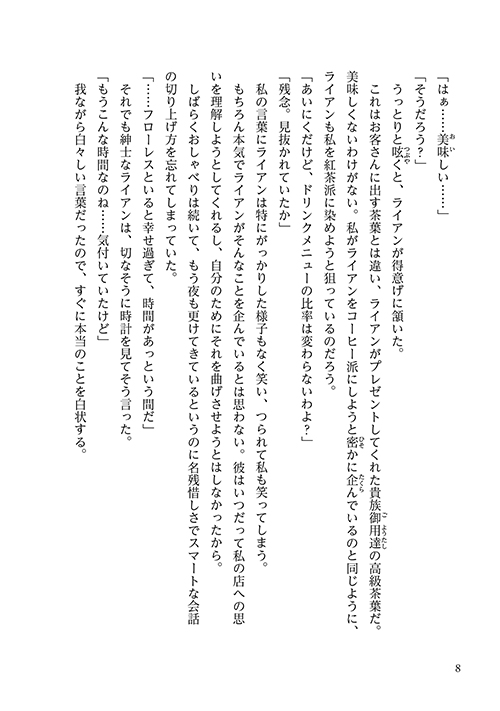 「はぁ……美味しい……」
「そうだろう？」
　うっとりと呟くと、ライアンが得意げに頷いた。
　これはお客さんに出す茶葉とは違い、ライアンがプレゼントしてくれた貴族御用達の高級茶葉だ。
美味しくないわけがない。私がライアンをコーヒー派にしようと密かに企んでいるのと同じように、
ライアンも私を紅茶派に染めようと狙っているのだろう。
「あいにくだけど、ドリンクメニューの比率は変わらないわよ？」
「残念。見抜かれていたか」
　私の言葉にライアンは特にがっかりした様子もなく笑い、つられて私も笑ってしまう。
　もちろん本気でライアンがそんなことを企んでいるとは思わない。彼はいつだって私の店への思
いを理解しようとしてくれるし、自分のためにそれを曲げさせようとはしなかったから。
　しばらくおしゃべりは続いて、もう夜も更けてきているというのに名残惜しさでスマートな会話
の切り上げ方を忘れてしまっていた。
「……フローレスといると幸せ過ぎて、時間があっという間だ」
　それでも紳士なライアンは、切なそうに時計を見てそう言った。
「もうこんな時間なのね……気付いていたけど」
　我ながら白々しい言葉だったので、すぐに本当のことを白状する。
8